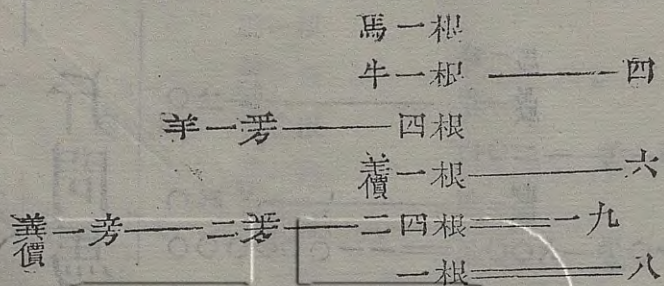 馬一根
牛一根——四
羊一平方——四根
羊價一根——六
羊價一立方——二平方——二四根══一九
一根══八